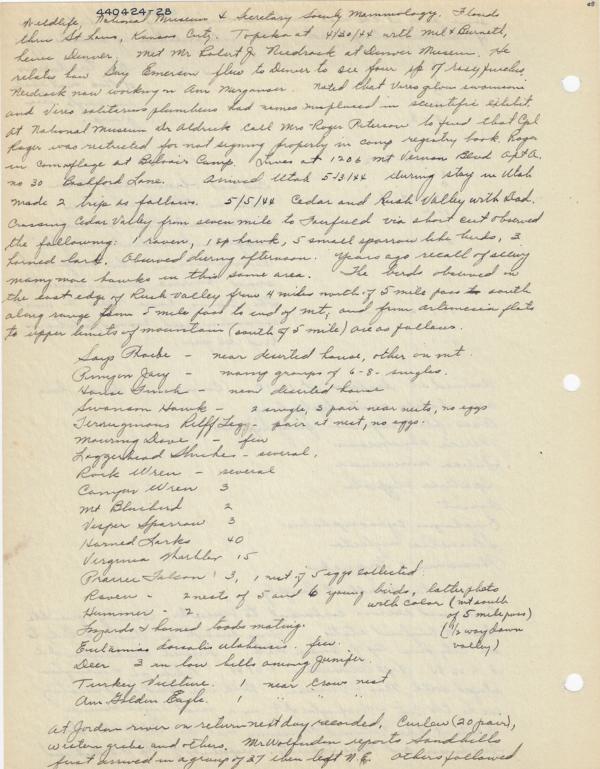 440424-28
Wildlife, National Museum & Secretary Society Mammology. Floods
thru St Louis, Kansas City. Topeka at 4/30/44 with Mel & Burnett,
hence Denver. Met Mr Robert J. Niedrach at Denver Museum. He
relates how Guy Emerson flew to Denver to see four sp of rosy finches.
Niedrach now working on Am Merganser. Noted that Vireo gilvus swainsoni
and Vireo solitarius plumbeus had names misplaced in scientific exhibit.
At National Museum Dr Aldrich call Mrs Roger Peterson to find that Cpl
Roger was restricted for not signing properly in camp registry book. Roger
in camouflage at Belvoir Camp. Lives at 1206 Mt Vernon Blvd Apt A.
no 30 Bashford Lane. Arrived Utah 5/3/44 during stay in Utah
made 2 trips as follows. 5/5/44 Cedar and Rush Valley with Dad.
Crossing Cedar Valley from seven mile to Fairfield via short cut observed
the following: 1 raven, 1 sp hawk, 5 small sparrow like birds, 3
horned lark. Observed during afternoon. Years ago recall of seeing
many more hawks in this same area. The birds observed in
the east edge of Rush Valley from 4 miles north of 5 mile pass to south
along range from 5 mile pass to end of mt, and from artemesia flats
to upper limits of mountain (south of 5 mile) are as follows.
Says Phoebe - near deserted house, other on mt.
Pinyon Jay - many groups of 6-8- singles.
House Finch - near deserted house
Swanson Hawk - 2 single, 3 pair near nests, no eggs
Ferruginous Ruff Leg - pair at nest, no eggs.
Mourning Dove - few
Loggerhead Shrike - several.
Rock Wren - several
Canyon Wren 3
Mt Bluebird 2
Vesper Sparrow 3
Horned Larks 40
Virginia Warbler 15
Prairie Falcon 3, 1 nest of 5 eggs collected
Raven - 2 nests of 5 and 6 young birds, latter photo
with color (mt south
of 5 mile pass)
Hummer - 2
(1/2 way down
valley)
Lizards & horned toads mating.
Eutamias dorsalis utahensis few.
Deer 3 in low hills among Junifer.
Turkey Vulture 1 near Crows nest
Am Golden Eagle 1 " " "
At Jordan river on return next day recorded, Curlew (20 pair),
Western grebe and others. Mr Wolfenden reports Sandhills
first arrived in a group of 27 then left N.E. Others followed